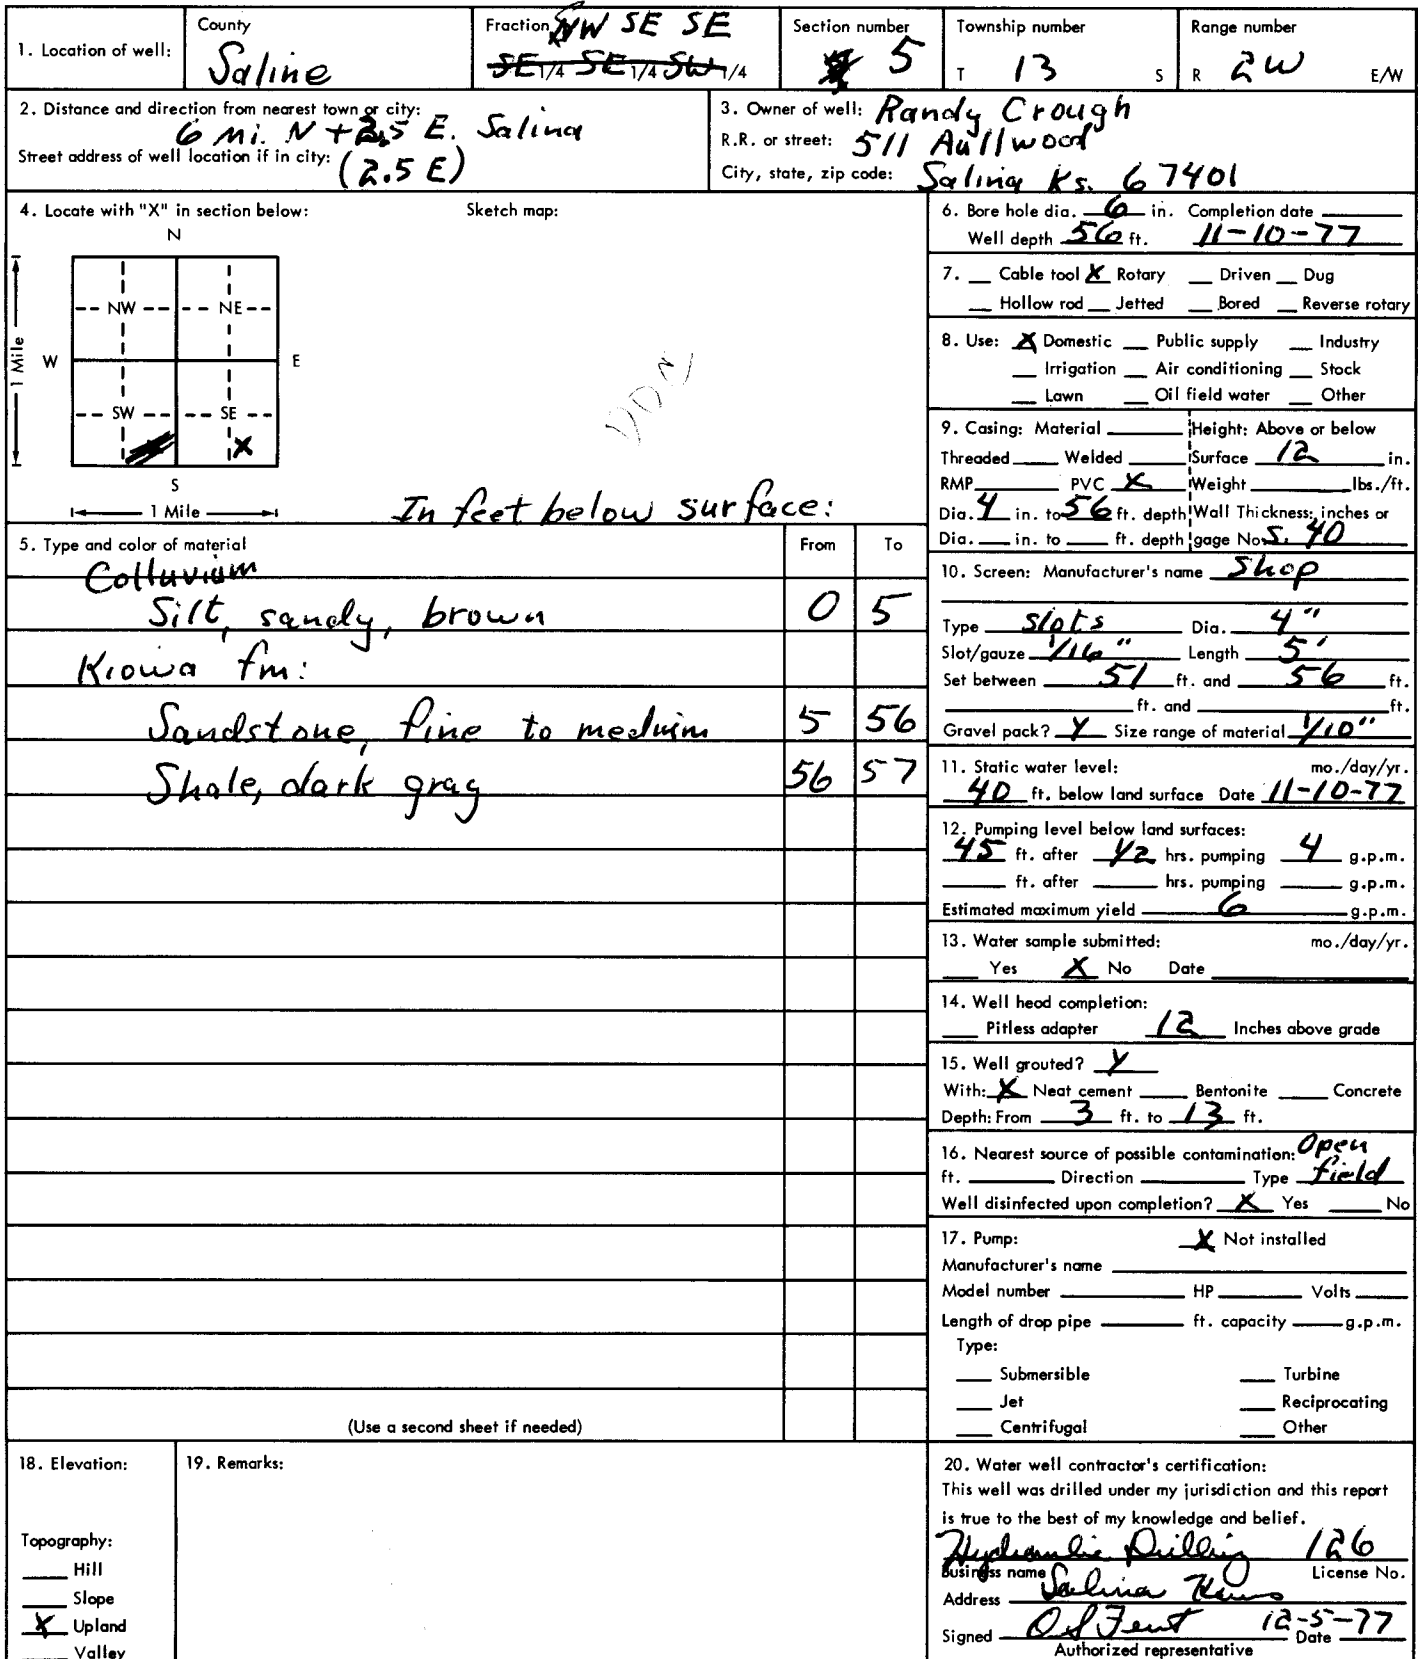 1. Location of well:
County
Saline
Fraction
NW SE SE
SE 1/4 SE 1/4 SW 1/4
Section number
5
Township number
T 13 S
Range number
R 2W E/W
2. Distance and direction from nearest town or city:
6 Mi. N + 2.5 E. Salina
Street address of well location if in city: (2.5 E)
3. Owner of well: Randy Crough
R.R. or street: 511 Aullwood
City, state, zip code: Salina Ks. 67401
4. Locate with "X" in section below:
Sketch map:
N
NW NE
W E
1 Mile
SW SE
X
S
1 Mile
In feet below surface:
5. Type and color of material From To
Colluvium
Silt, sandy, brown 0 5
Kiowa fm:
Sandstone, fine to medium 5 56
Shale, dark gray 56 57
(Use a second sheet if needed)
6. Bore hole dia. 6 in. Completion date
Well depth 56 ft. 11-10-77
7. Cable tool X Rotary Driven Dug
Hollow rod Jetted Bored Reverse rotary
8. Use: X Domestic Public supply Industry
Irrigation Air conditioning Stock
Lawn Oil field water Other
9. Casing: Material Height: Above or below
Threaded Welded Surface 12 in.
RMP PVC X Weight lbs./ft.
Dia. 4 in. to 56 ft. depth Wall Thickness: inches or
Dia. in. to ft. depth gage No. S. 40
10. Screen: Manufacturer's name Shop
Type slots Dia. 4"
Slot/gauze 1/16" Length 5'
Set between 51 ft. and 56 ft.
ft. and ft.
Gravel pack? Y Size range of material 1/10"
11. Static water level: mo./day/yr.
40 ft. below land surface Date 11-10-77
12. Pumping level below land surfaces:
45 ft. after 1/2 hrs. pumping 4 g.p.m.
ft. after hrs. pumping g.p.m.
Estimated maximum yield 6 g.p.m.
13. Water sample submitted: mo./day/yr.
Yes X No Date
14. Well head completion:
Pitless adapter 12 Inches above grade
15. Well grouted? Y
With: X Neat cement Bentonite Concrete
Depth: From 3 ft. to 13 ft.
16. Nearest source of possible contamination: Open
ft. Direction Type field
Well disinfected upon completion? X Yes No
17. Pump: X Not installed
Manufacturer's name
Model number HP Volts
Length of drop pipe ft. capacity g.p.m.
Type:
Submersible Turbine
Jet Reciprocating
Centrifugal Other
18. Elevation:
Topography:
Hill
Slope
X Upland
Valley
19. Remarks:
20. Water well contractor's certification:
This well was drilled under my jurisdiction and this report
is true to the best of my knowledge and belief.
Hydraulic Drilling 126
Business name License No.
Address Salina Kans
Signed O S Fent 12-5-77
Date
Authorized representative